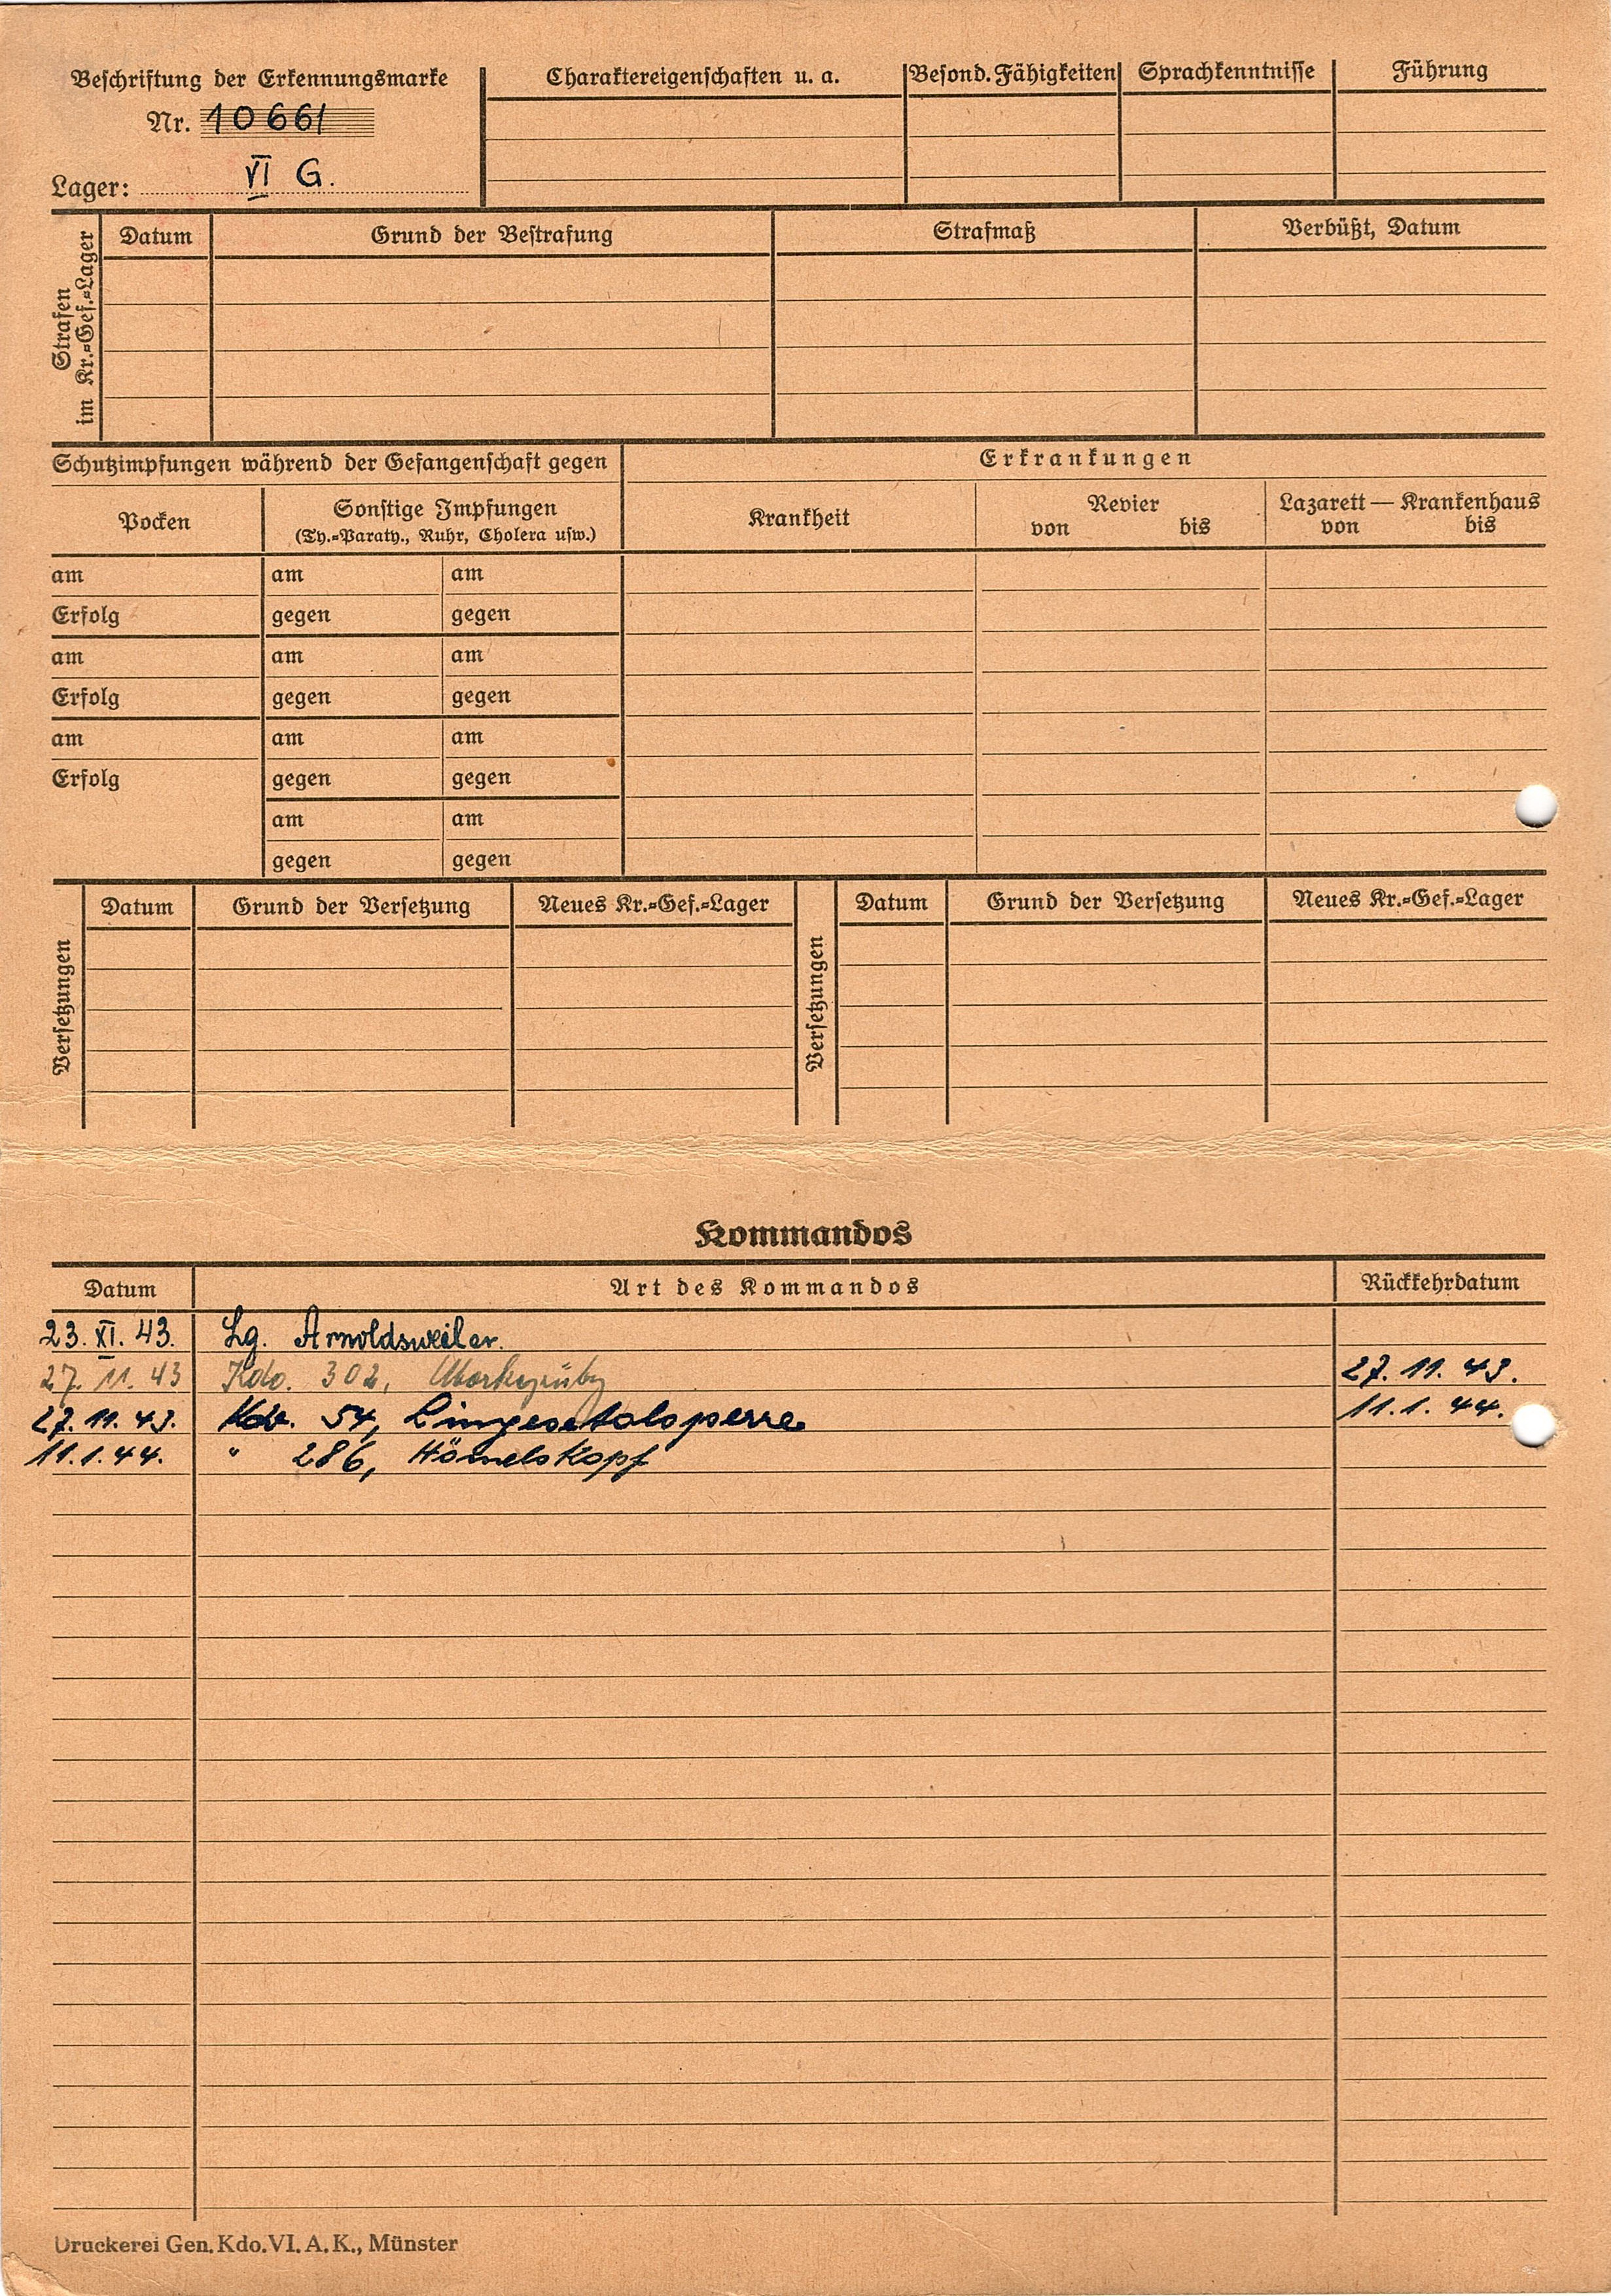 Beschriftung der Erkennungsmarke
Nr. 10661
Lager: VI G.
Charaktereigenschaften u. a.
Besond. Fähigkeiten
Sprachkenntnisse
Führung
Strafen
im Kr.=Gef.=Lager
Datum
Grund der Bestrafung
Strafmaß
Verbüßt, Datum
Schutzimpfungen während der Gefangenschaft gegen
Erkrankungen
Pocken
Sonstige Impfungen
(Ty.=Paraty., Ruhr, Cholera usw.)
Krankheit
Revier
von bis
Lazarett — Krankenhaus
von bis
am am am
Erfolg gegen gegen
am am am
Erfolg gegen gegen
am am am
Erfolg gegen gegen
am am
gegen gegen
Versetzungen
Datum
Grund der Versetzung
Neues Kr.=Gef.=Lager
Versetzungen
Datum
Grund der Versetzung
Neues Kr.=Gef.=Lager
Kommandos
Datum Art des Kommandos Rückkehrdatum
23. XI. 43. Lg. Arnoldsweiler.
27. 11. 43 Kdo. 302, 27. 11. 43.
27. 11. 43. Kdo. 54, Lingesetalsperre 11. 1. 44.
11. 1. 44. " 286,
Druckerei Gen. Kdo. VI. A. K., Münster